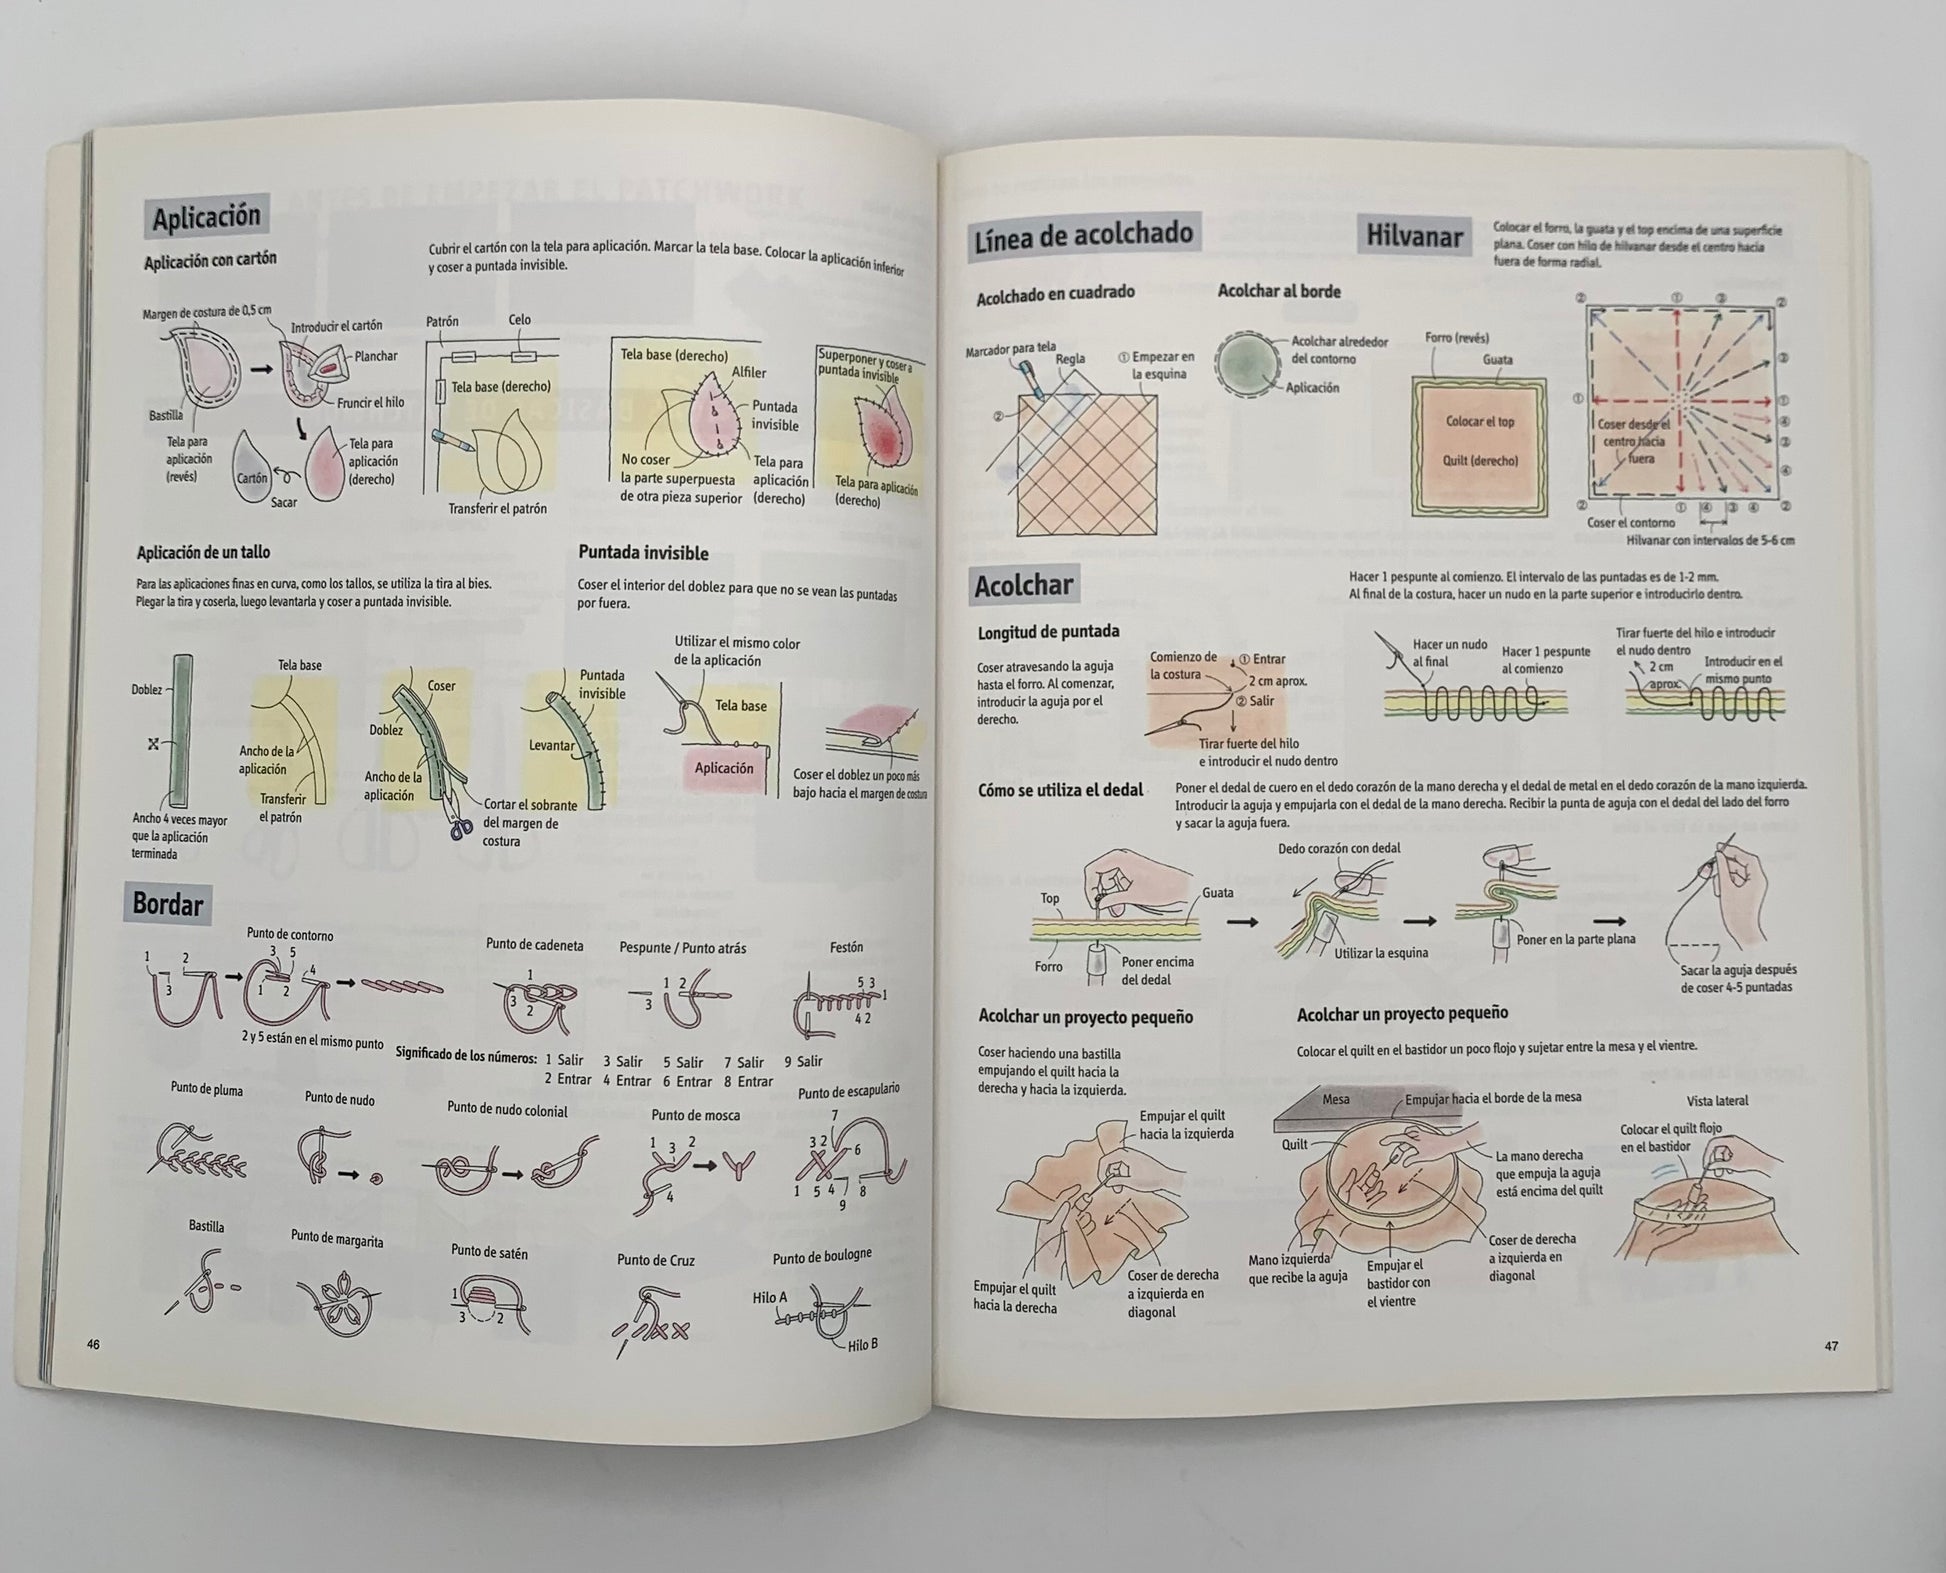 Aplicación
Aplicación con cartón
Cubrir el cartón con la tela para aplicación. Marcar la tela base. Colocar la aplicación inferior
y coser a puntada invisible.
Margen de costura de 0,5 cm
Introducir el cartón
Planchar
Fruncir el hilo
Bastilla
Tela para
aplicación
(revés)
Cartón
Sacar
Tela para
aplicación
(derecho)
Patrón
Celo
Tela base (derecho)
Transferir el patrón
Tela base (derecho)
Alfiler
Puntada
invisible
No coser
la parte superpuesta
de otra pieza superior
Tela para
aplicación
(derecho)
Superponer y coser a
puntada invisible
Tela para aplicación
(derecho)
Aplicación de un tallo
Para las aplicaciones finas en curva, como los tallos, se utiliza la tira al bies.
Plegar la tira y coserla, luego levantarla y coser a puntada invisible.
Doblez
Ancho 4 veces mayor
que la aplicación
terminada
Tela base
Ancho de la
aplicación
Transferir
el patrón
Coser
Doblez
Ancho de la
aplicación
Cortar el sobrante
del margen de
costura
Puntada
invisible
Levantar
Puntada invisible
Coser el interior del doblez para que no se vean las puntadas
por fuera.
Utilizar el mismo color
de la aplicación
Tela base
Aplicación
Coser el doblez un poco más
bajo hacia el margen de costura
Bordar
Punto de contorno
1 2 3
3 5 4 1 2
2 y 5 están en el mismo punto
Punto de cadeneta
1
3
2
Pespunte / Punto atrás
1 2
3
Festón
5 3
1
4 2
Significado de los números: 1 Salir 3 Salir 5 Salir 7 Salir 9 Salir
2 Entrar 4 Entrar 6 Entrar 8 Entrar
Punto de pluma
Punto de nudo
Punto de nudo colonial
Punto de mosca
1 3 2
4
Punto de escapulario
7
3 2
6
1 5 4 8
9
Bastilla
Punto de margarita
Punto de satén
1
3 2
Punto de Cruz
Punto de boulogne
Hilo A
Hilo B
46
Línea de acolchado
Acolchado en cuadrado
Marcador para tela
Regla
① Empezar en
la esquina
②
Acolchar al borde
Acolchar alrededor
del contorno
Aplicación
Hilvanar
Colocar el forro, la guata y el top encima de una superficie
plana. Coser con hilo de hilvanar desde el centro hacia
fuera de forma radial.
Forro (revés)
Guata
Colocar el top
Quilt (derecho)
② ① ③ ②
③
① ①
④
③
④
② ① ④ ③ ④ ②
Coser desde el
centro hacia
fuera
Coser el contorno
Hilvanar con intervalos de 5-6 cm
Acolchar
Hacer 1 pespunte al comienzo. El intervalo de las puntadas es de 1-2 mm.
Al final de la costura, hacer un nudo en la parte superior e introducirlo dentro.
Longitud de puntada
Coser atravesando la aguja
hasta el forro. Al comenzar,
introducir la aguja por el
derecho.
Comienzo de
la costura
① Entrar
2 cm aprox.
② Salir
Tirar fuerte del hilo
e introducir el nudo dentro
Hacer un nudo
al final
Hacer 1 pespunte
al comienzo
Tirar fuerte del hilo e introducir
el nudo dentro
2 cm
aprox.
Introducir en el
mismo punto
Cómo se utiliza el dedal
Poner el dedal de cuero en el dedo corazón de la mano derecha y el dedal de metal en el dedo corazón de la mano izquierda.
Introducir la aguja y empujarla con el dedal de la mano derecha. Recibir la punta de aguja con el dedal del lado del forro
y sacar la aguja fuera.
Top
Guata
Forro
Poner encima
del dedal
Dedo corazón con dedal
Utilizar la esquina
Poner en la parte plana
Sacar la aguja después
de coser 4-5 puntadas
Acolchar un proyecto pequeño
Coser haciendo una bastilla
empujando el quilt hacia la
derecha y hacia la izquierda.
Empujar el quilt
hacia la izquierda
Empujar el quilt
hacia la derecha
Coser de derecha
a izquierda en
diagonal
Acolchar un proyecto pequeño
Colocar el quilt en el bastidor un poco flojo y sujetar entre la mesa y el vientre.
Mesa
Empujar hacia el borde de la mesa
Quilt
La mano derecha
que empuja la aguja
está encima del quilt
Mano izquierda
que recibe la aguja
Empujar el
bastidor con
el vientre
Coser de derecha
a izquierda en
diagonal
Vista lateral
Colocar el quilt flojo
en el bastidor
47